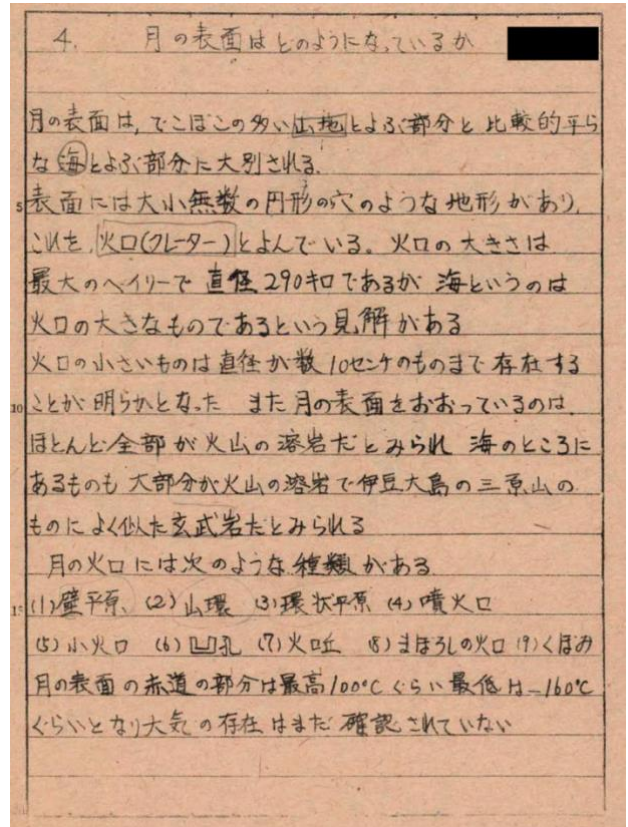 4. 月の表面はどのようになっているか
月の表面は, でこぼこの多い山地とよぶ部分と 比較的平ら
な海とよぶ部分に大別される.
5
表面には大小無数の円形の穴のような地形があり,
これを, 火口(クレーター)とよんでいる。火口の大きさは
最大のベイリーで直径290キロであるが 海というのは
火口の大きなものであるという見解がある
火口の小さいものは直径が数10センチのものまで存在する
10
ことが明らかとなった また月の表面をおおっているのは,
ほとんど全部が火山の溶岩だとみられ 海のところに
あるものも 大部分が火山の溶岩で伊豆大島の三原山の
ものによく似た玄武岩だとみられる
月の火口には次のような種類がある
15
(1)壁平原 (2)山環 (3)環状平原 (4)噴火口
(5)小火口 (6)凹孔 (7)火口丘 (8)まぼろしの火口 (9)くぼみ
月の表面の赤道の部分は最高100℃ぐらい最低は-160℃
ぐらいとなり大気の存在はまだ確認されていない